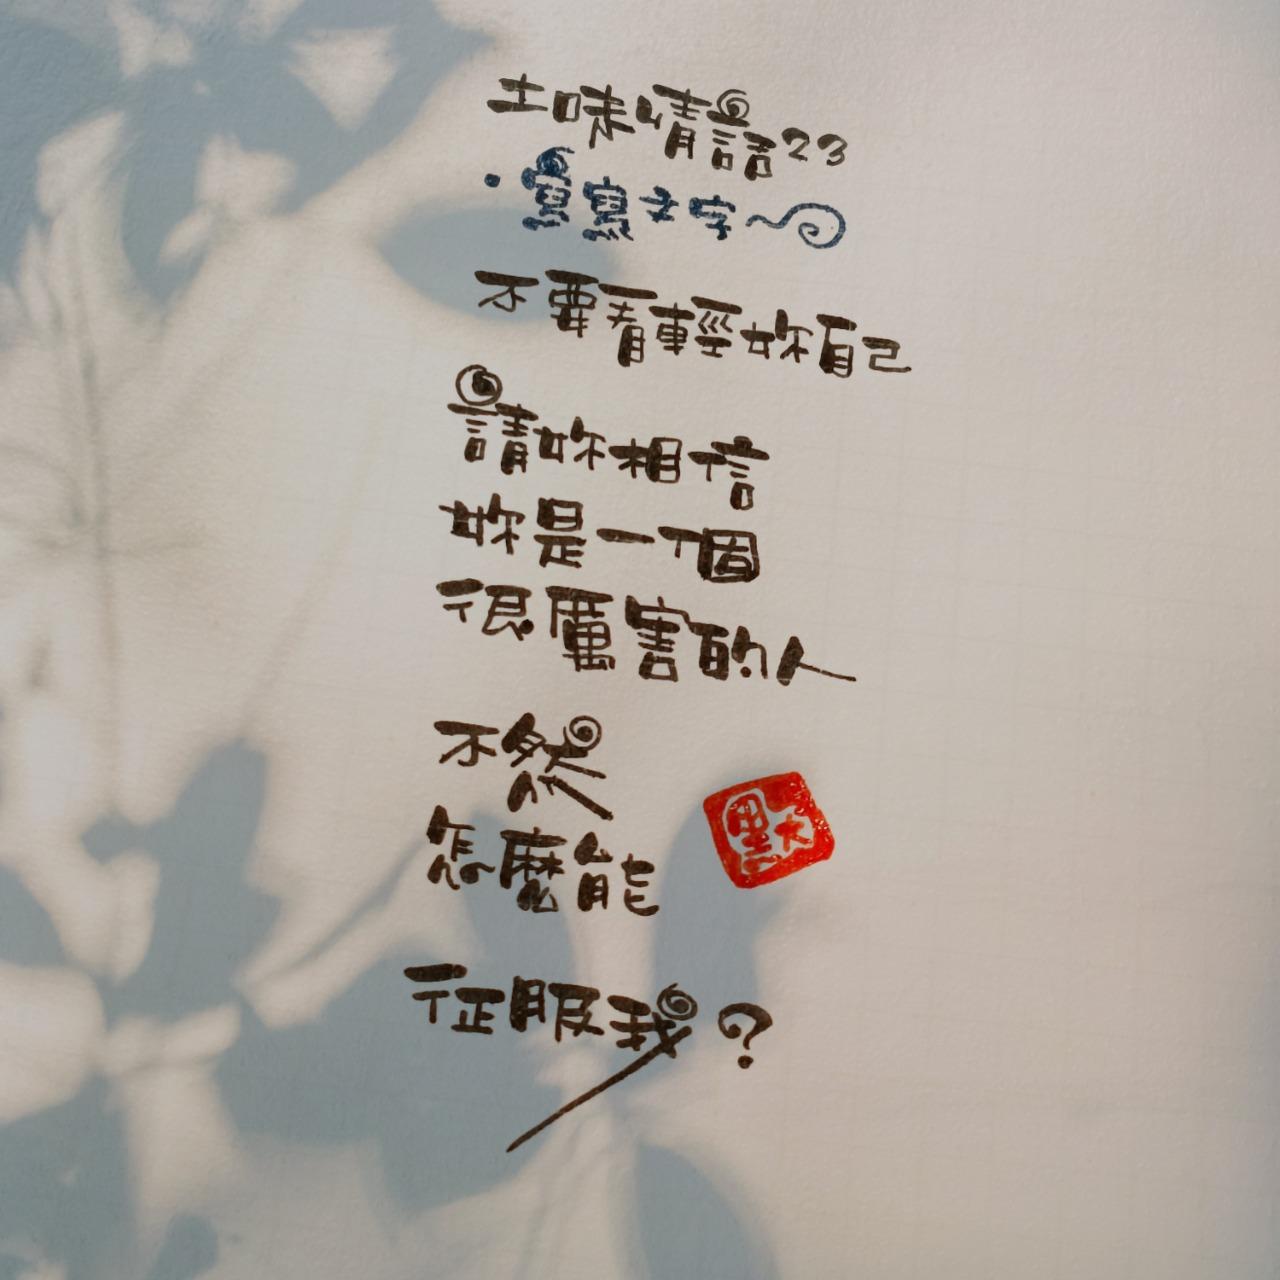 土味情話23
·寫寫文字~
不要看輕妳自己
請妳相信
妳是一個
很厲害的人
不然
怎麼能
征服我?
墨大